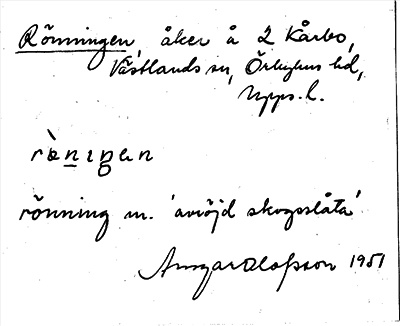 Rönningen, åker å 2 Kårbo,
Västlands sn, Örbyhus hd,
Upps. l.
rönning m. 'avröjd skogsslåta'
Ansgar Olofsson 1951